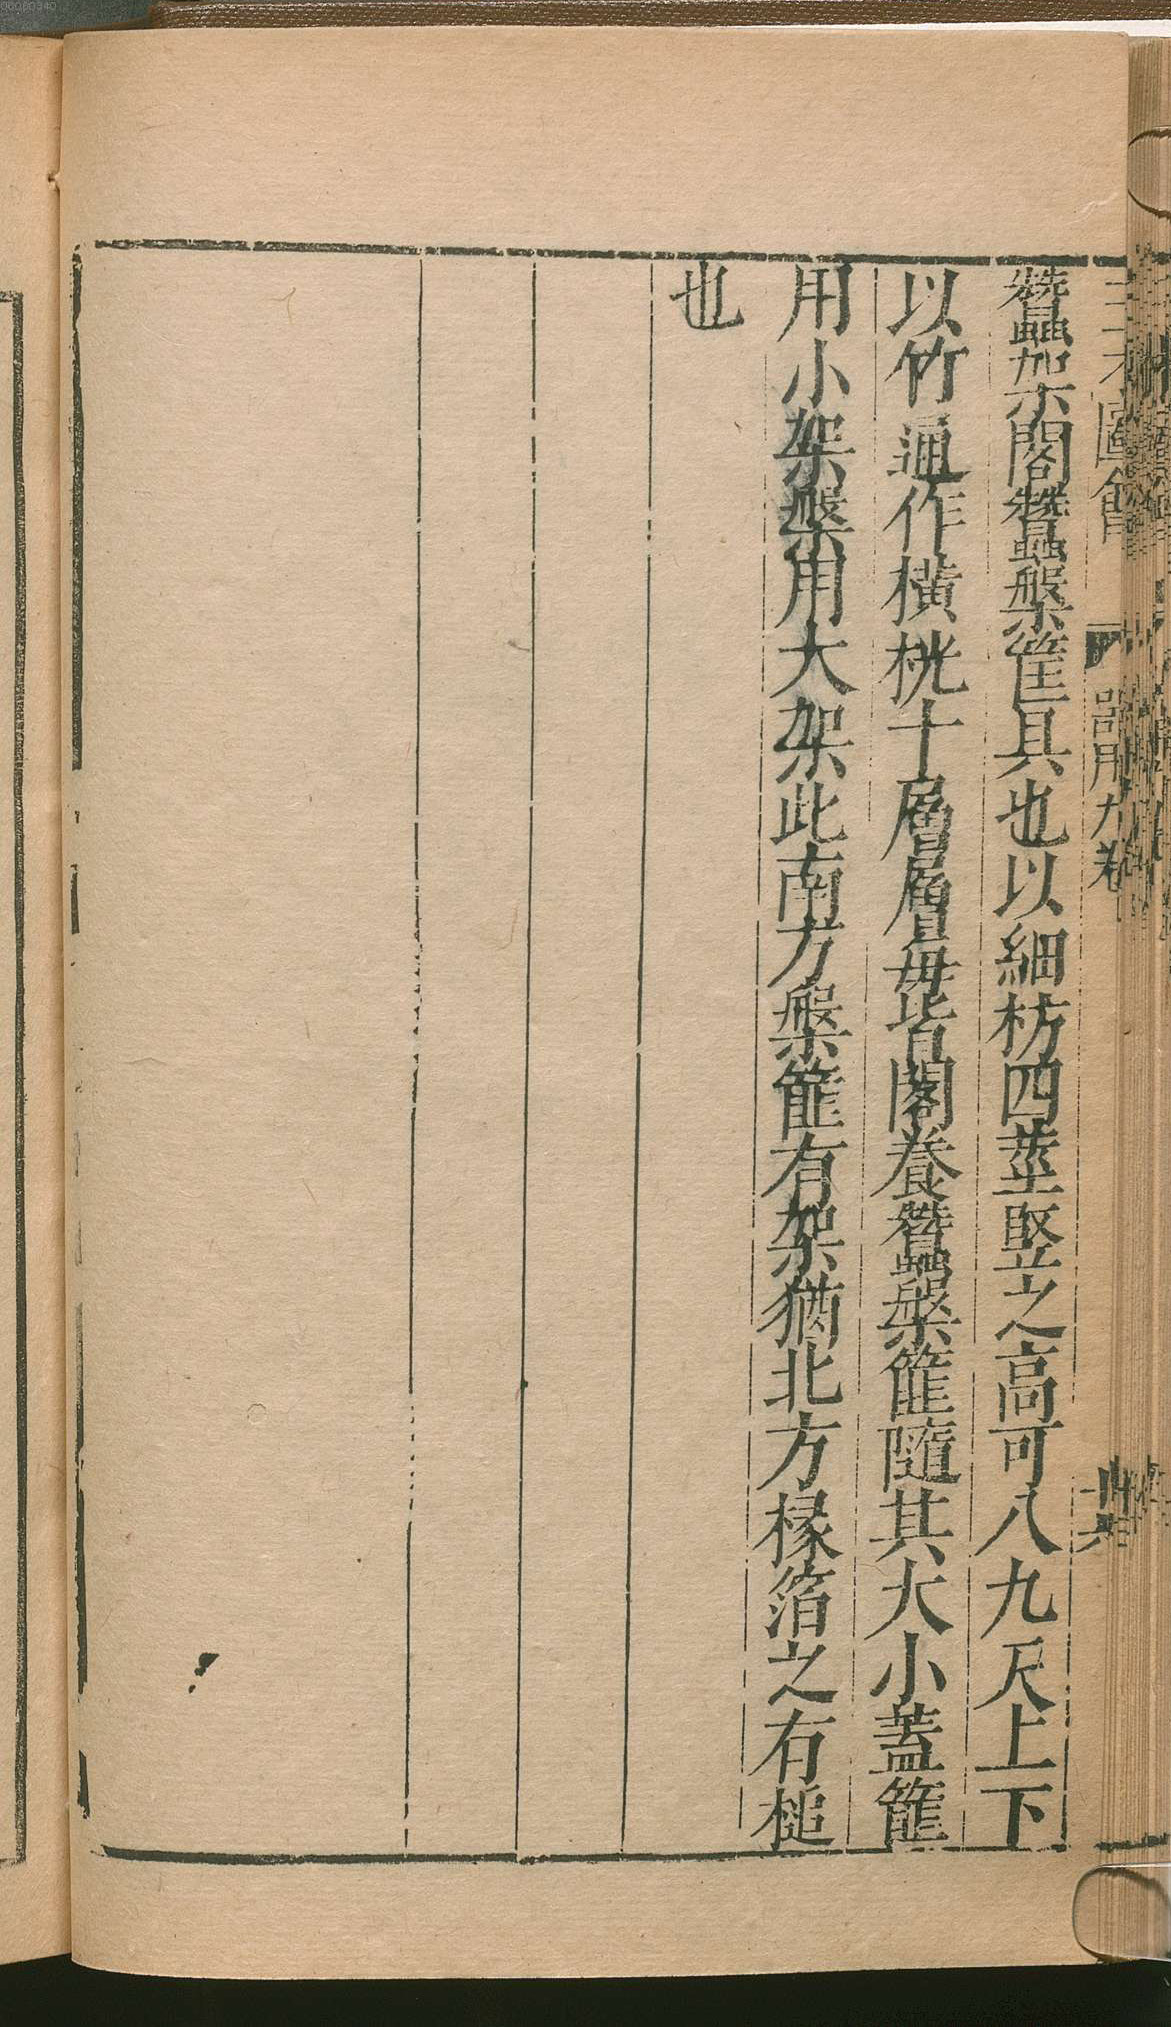 三才圖會
器用九卷
廿六
蠶架閣蠶槃筐具也以細枋四莖竪之高可八九尺上下
以竹通作橫桄十層層每皆閣養蠶槃䉪隨其大小蓋䉪
用小架槃用大架此南方槃䉪有架猶北方椽箔之有槌
也